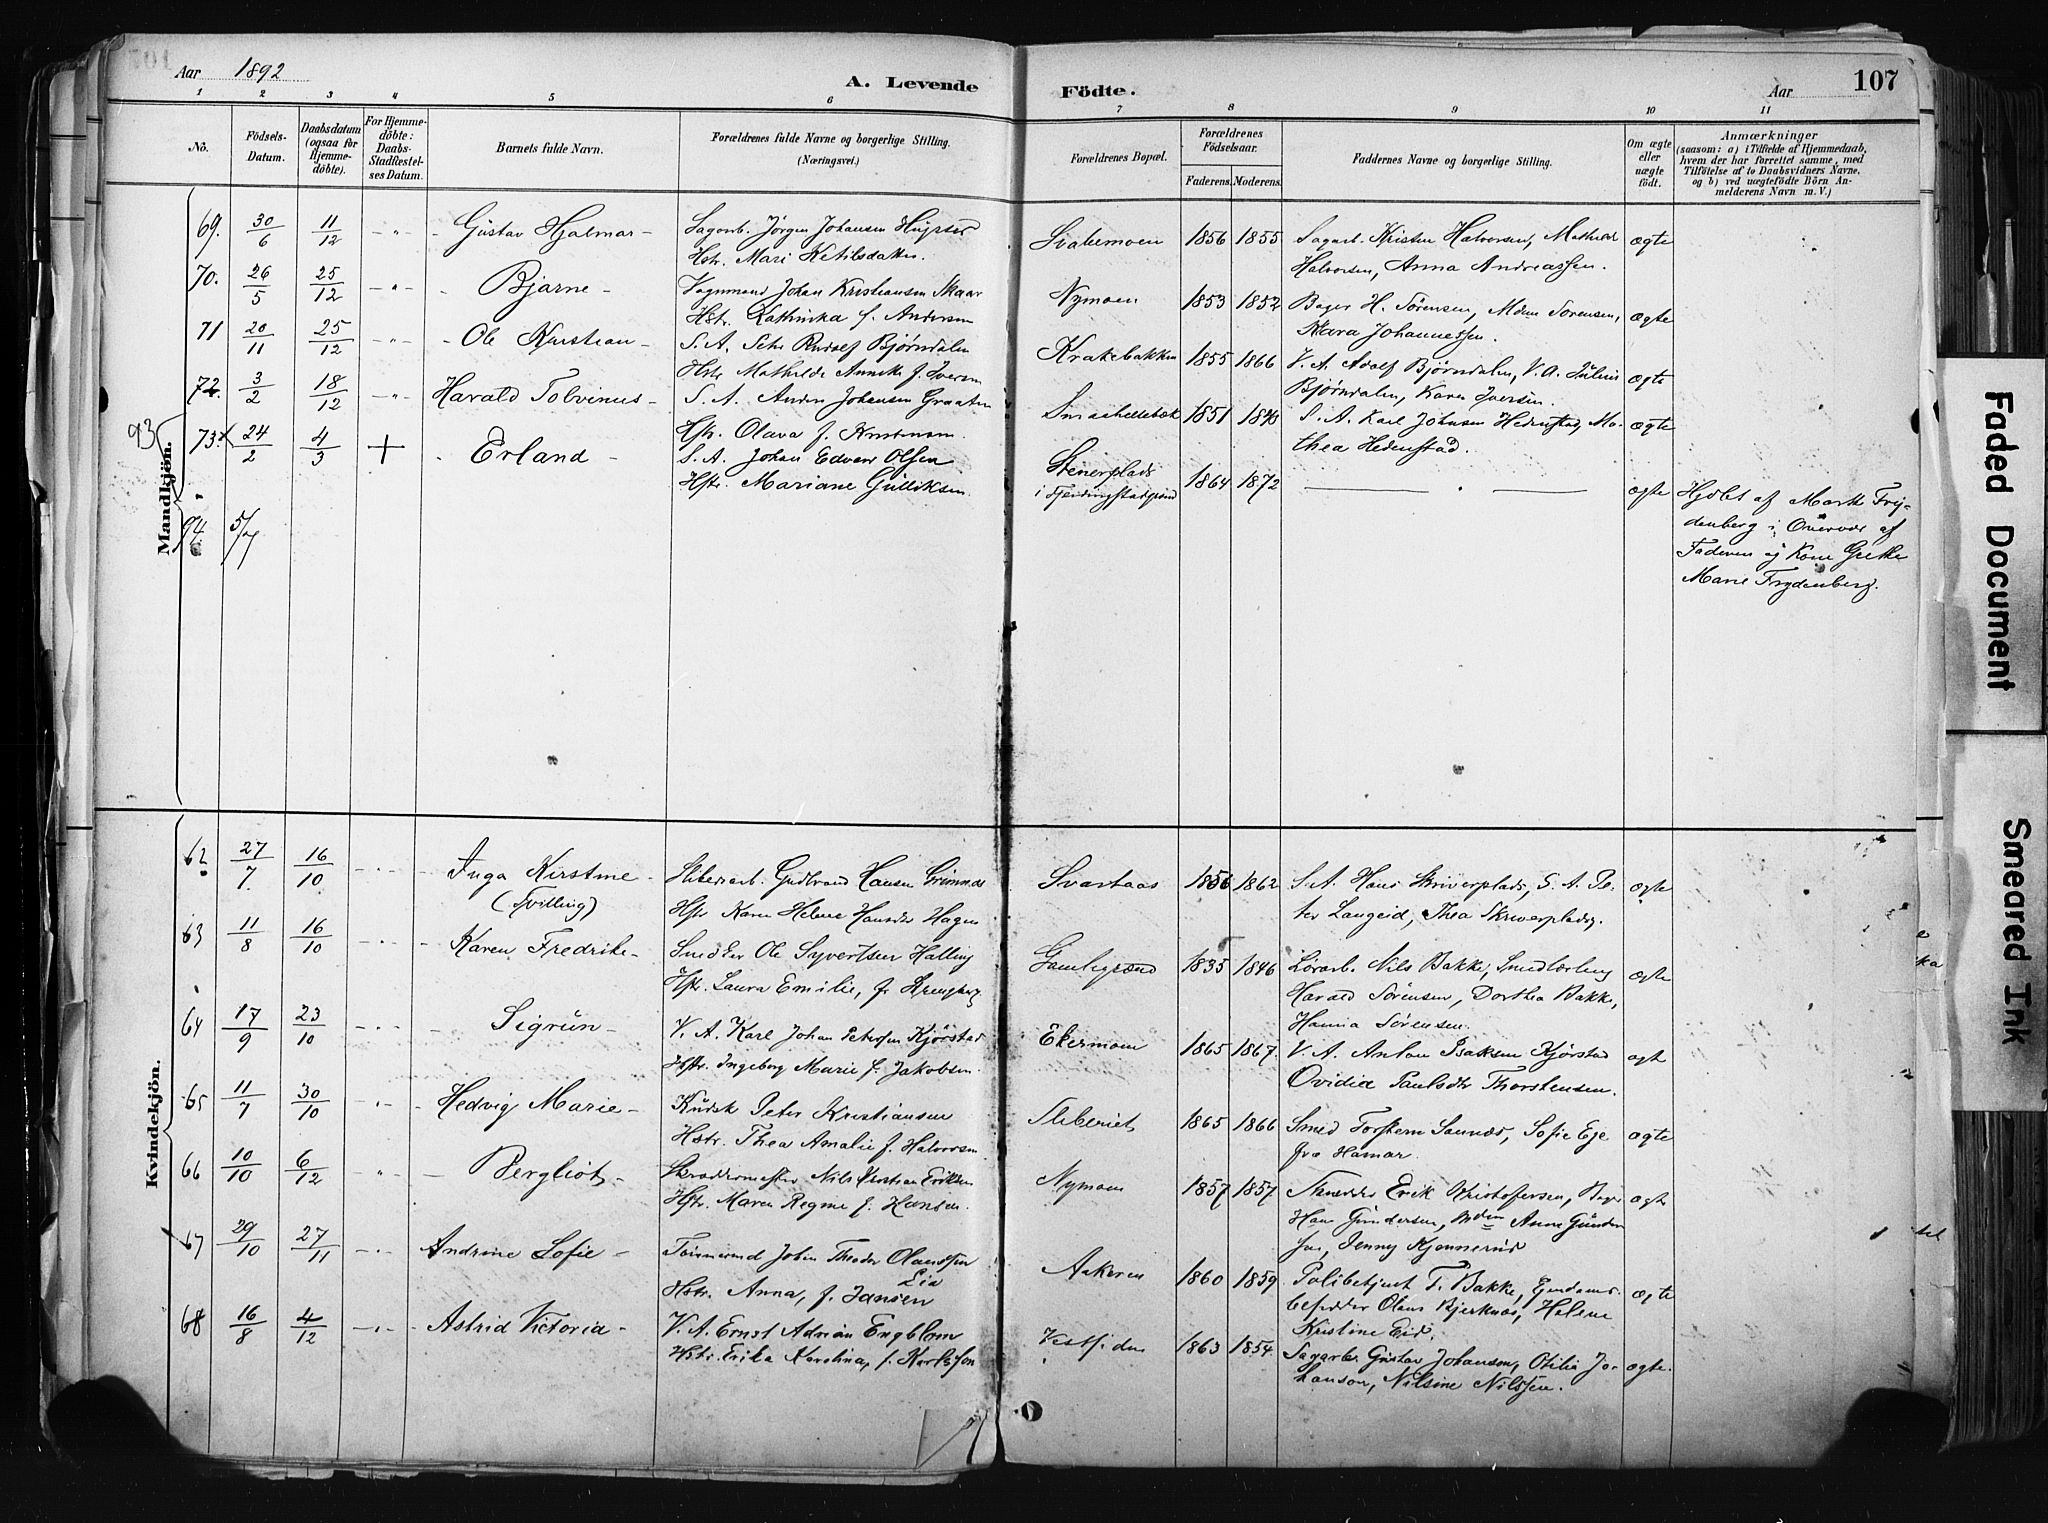 Aar 1892
A. Levende Födte.
Aar
107
1 2 3 4 5 6 7 8 9 10 11
No.
Födsels-Datum.
Daabsdatum (ogsaa for Hjemme-döbte).
For Hjemme-döbte: Daabs-Stadfæstel-ses Datum.
Barnets fulde Navn.
Forældrenes fulde Navne og borgerlige Stilling.
(Næringsvei.)
Forældrenes Bopæl.
Forældrenes Födselsaar.
Faderens. Moderens.
Faddernes Navne og borgerlige Stilling.
Om ægte eller uægte födt.
Anmærkninger
(saasom: a) i Tilfælde af Hjemmedaab,
hvem der har forrettet samme, med
Tilföielse af to Daabsvidners Navne,
og b) ved uægtefödte Börn An-
melderens Navn m. V.)
Mandkjön.
69. 30/6 11/12 - " - Gustav Hjalmar - Sagarb. Jörgen Johansen
Hstr. Mari Ketilsdatter. 1856 1855 Sagarb. Kristen Halvorsen, Mathilde ægte
Halvorsen, Anna Andreassen.
70. 26/5 25/12 - " - Bjarne - Vognmand Johan Kristiansen Skaar
Hstr. Kathinka f. Andersen Nymoen 1853 1852 Bager H. Sörensen, Mdm Sörensen, ægte
Klara Johannessen.
71 20/11 25/12 - " - Ole Kristian - S. A. Rudolf Björndalen
Hstr Mathilde Annette f. Iversen Krakebakken 1855 1866 V. A. Adolf Björndalen, V. A. Julius ægte
Björndalen, Karen Iversen.
72. 3/2 18/12 - " Harald Tolvinus - S. A. Anders Johansen Graaten
Hstr. Olava f. Kristensen. 1851 S. A. Karl Johansen Hedenstad, Ma- ægte
thea Hedenstad.
93
73. x 24/2 4/3 + Erland - S. A. Johan Edvard Olsen
Hstr. Mariane Gulliksen. Stenerplads
i 1864 1872 ægte
Hjdbt af Marthe Fry-
denberg i Overvær af
Faderen og Kone Grethe
Marie Frydenberg.
94 5/7
Kvindekjön.
62 27/7. 16/10 Inga Kirstine -
(Tvilling) Sliberarb. Gudbrand Hansen
Hstr Karen Helene Hansdtr Hagen Svartaas 1856 1862 S. A. Hans Skriverplads, S. A. Pe- ægte
ter Langeid, Thea Skriverplads.
63 11/8 16/10 Karen Fredrike - Smed Ole Syvertsen Halling
Hstr. Laura Emilie, f. Gamlegrend 1835 1846 Lörarb. Nils Bakke, Smedlærling ægte
Harald Sörensen, Dorthea Bakke,
Hanna Sörensen.
64 17/9 23/10 Sigrun - V. A. Karl Johan Petersen Kjörstad
Hstr. Ingeborg Marie f. Jakobsen. Ekermoen 1865 1867. V. A. Anton Isaksen Kjörstad ægte
Ovidia Paulsdtr Thorstensen.
65 11/7 30/10 Hedvig Marie - Kudsk Peter Kristiansen
Hstr. Thea Amalie f. Halvorsen. Sliberiet 1865 1866 Smed Torstein Saunæs, Sofie Eje ægte
fra Hamar.
66 10/10 6/12 " Bergliot - Skræddermester Nils Kristian Eriksen
Hstr. Maren Regine f. Hansen. Nymoen 1857 1857. Skrædder Erik Kristofersen, ægte
Hans Gundersen, Mdm Anne Gunder
sen, Jenny Kjennerud
67 29/10 27/11 Andrine Sofie - Johan Theodor Olaussen
Lia
Hstr. Anna, f. Jansen Aakeren 1860 1859 Polibetjent T. Bakke, Eiendoms- ægte
besidder Olaus Bjerknæs, Helene
Kristine Eid.
68 16/8 4/12 Astrid Victoria - V. A. Ernst Adrian Engblom
Hstr. Erika Karolina, f. Karlsson Vestsiden 1863 1854. Sagarb. Gustav Johanson, Otilia Jo- ægte.
hanson, Nilsine Nilssen.
Faded Document
Smeared Ink